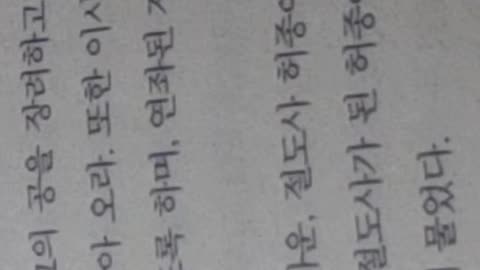 의 공을 장려하고
아 오라. 또한
록 하며, 연좌된
운, 절도사 허종
절도사가 된 허종
물었다.